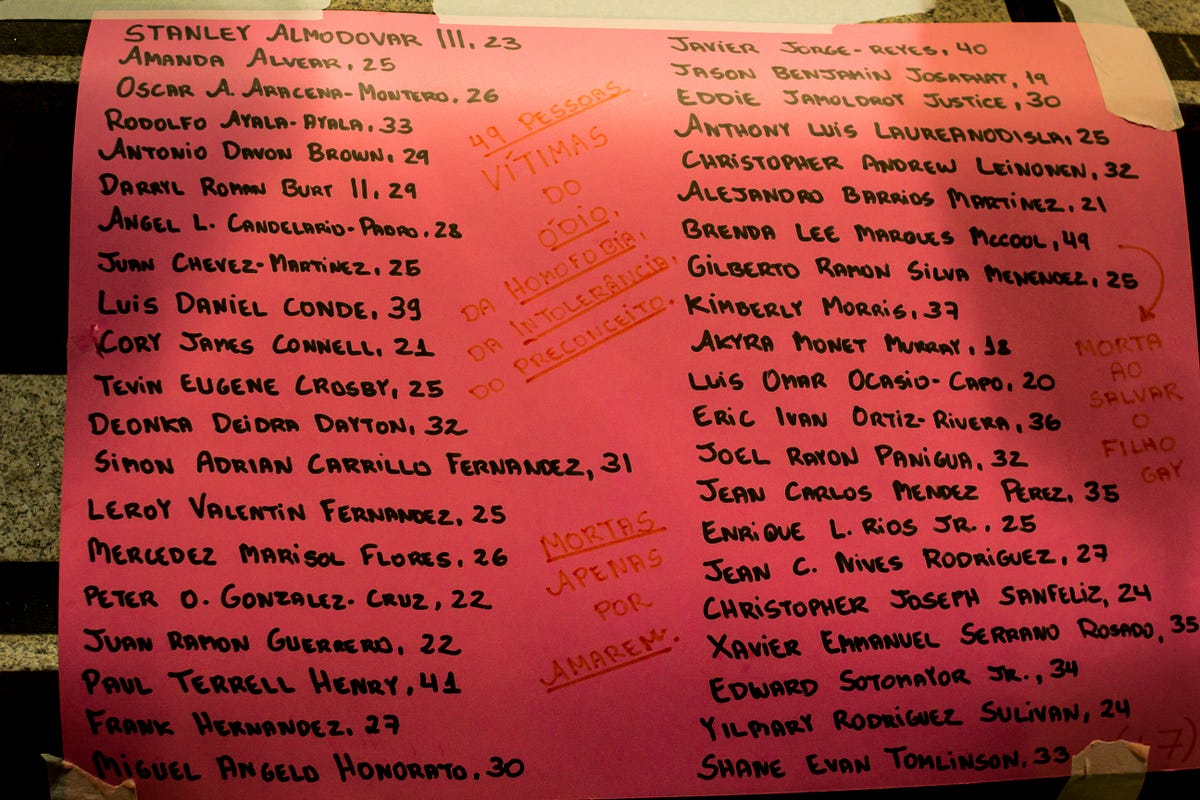 STANLEY ALMODOVAR III, 23
AMANDA ALVEAR, 25
OSCAR A. ARACENA-MONTERO, 26
RODOLFO AYALA-AYALA, 33
ANTONIO DAVON BROWN, 29
DARRYL ROMAN BURT II, 29
ANGEL L. CANDELARIO-PADRO, 28
JUAN CHEVEZ-MARTINEZ, 25
LUIS DANIEL CONDE, 39
CORY JAMES CONNELL, 21
TEVIN EUGENE CROSBY, 25
DEONKA DEIDRA DAYTON, 32
SIMON ADRIAN CARRILLO FERNANDEZ, 31
LEROY VALENTIN FERNANDEZ, 25
MERCEDEZ MARISOL FLORES, 26
PETER O. GONZALEZ-CRUZ, 22
JUAN RAMON GUERRERO, 22
PAUL TERRELL HENRY, 41
FRANK HERNANDEZ, 27
MIGUEL ANGELO HONORATO, 30
49 PESSOAS
VÍTIMAS
DO
ÓDIO,
DA HOMOFOBIA,
DA INTOLERÂNCIA,
DO PRECONCEITO.
MORTAS
APENAS
POR
AMAREM.
JAVIER JORGE-REYES, 40
JASON BENJAMIN JOSAPHAT, 19
EDDIE JAMOLDROY JUSTICE, 30
ANTHONY LUIS LAUREANODISLA, 25
CHRISTOPHER ANDREW LEINONEN, 32
ALEJANDRO BARRIOS MARTINEZ, 21
BRENDA LEE MARQUES MCCOOL, 49
GILBERTO RAMON SILVA MENENDEZ, 25
KIMBERLY MORRIS, 37
AKYRA MONET MURRAY, 18
LUIS OMAR OCASIO-CAPO, 20
ERIC IVAN ORTIZ-RIVERA, 36
JOEL RAYON PANIGUA, 32
JEAN CARLOS MENDEZ PEREZ, 35
ENRIQUE L. RIOS JR., 25
JEAN C. NIVES RODRIGUEZ, 27
CHRISTOPHER JOSEPH SANFELIZ, 24
XAVIER EMMANUEL SERRANO ROSADO, 35
EDWARD SOTOMAYOR JR., 34
YILMARY RODRIGUEZ SULIVAN, 24
SHANE EVAN TOMLINSON, 33
MORTA
AO
SALVAR
O
FILHO
GAY